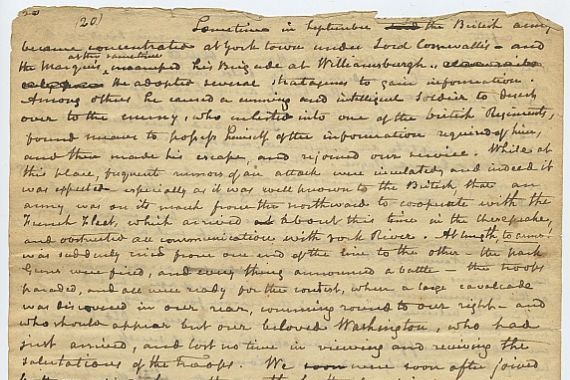 (20)
Sometime in September and the British army
became concentrated at York town under Lord Cornwallis - and
at this time
the Marquis, encamped his Brigade at Williamsburgh.
he adopted several stratagems to gain information.
Among others he caused a cunning and intelligent Soldier to desert
over to the enemy, who enlisted into one of the british Regiments,
found means to possess himself of the information required of him,
and then made his escape, and rejoined our service. While at
this place, frequent rumors of an attack were circulated, and indeed it
was expected - especially as it was well known to the British, that an
army was on its march from the northward to cooperate with the
French Fleet, which arrived about this time in the chesapeake,
and obstructed all communication with York River. At length, to arms!
was suddenly cried from one end of the line to the other - the park
Guns were fired, and every thing announced a battle - the troops
paraded, and all were ready for the contest, when a large cavalcade
was discovered in our rear, comming round to our right - and
who should appear but our beloved Washington, who had
just arrived, and lost no time in viewing and receiving the
salutations of the troops. We soon were soon after joined